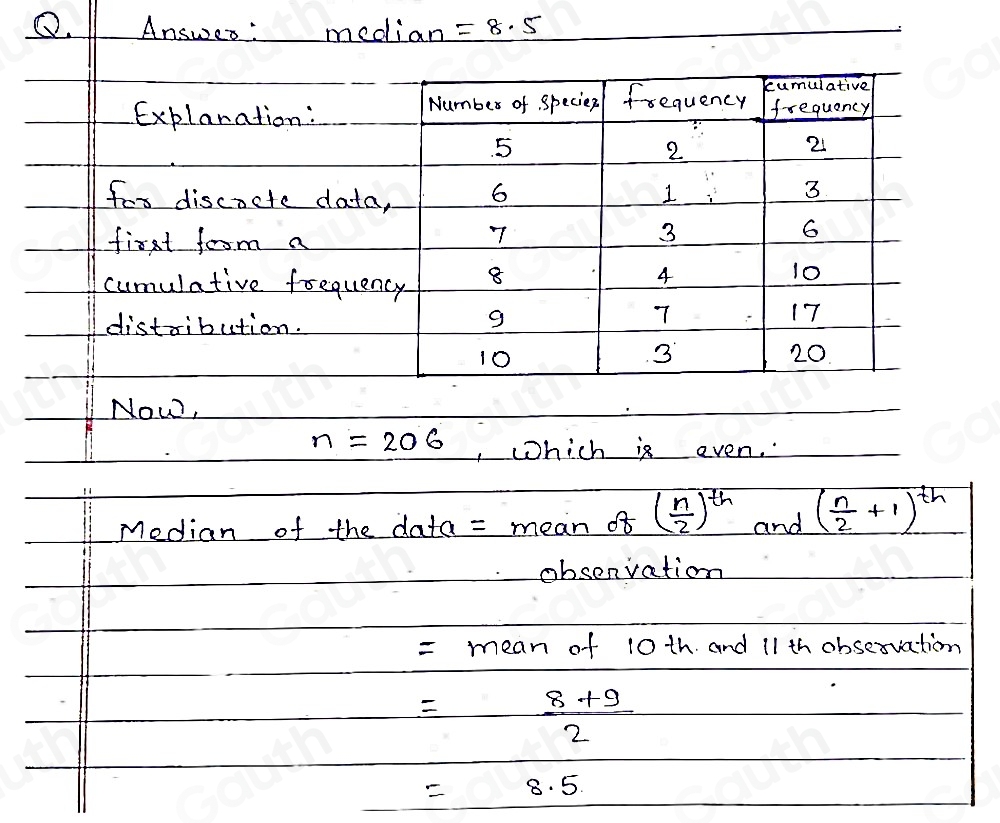 Q. Answer: median = 8.5
Explanation:
Number of species frequency cumulative frequency
5 2 2
6 1 3
7 3 6
8 4 10
9 7 17
10 3 20
for discrete data,
first form a
cumulative frequency
distribution.
Now,
n = 206, which is even.
Median of the data = mean of (n/2)th and (n/2 + 1)th
observation
= mean of 10 th. and 11 th observation
= 8+9
2
= 8.5
Gauth